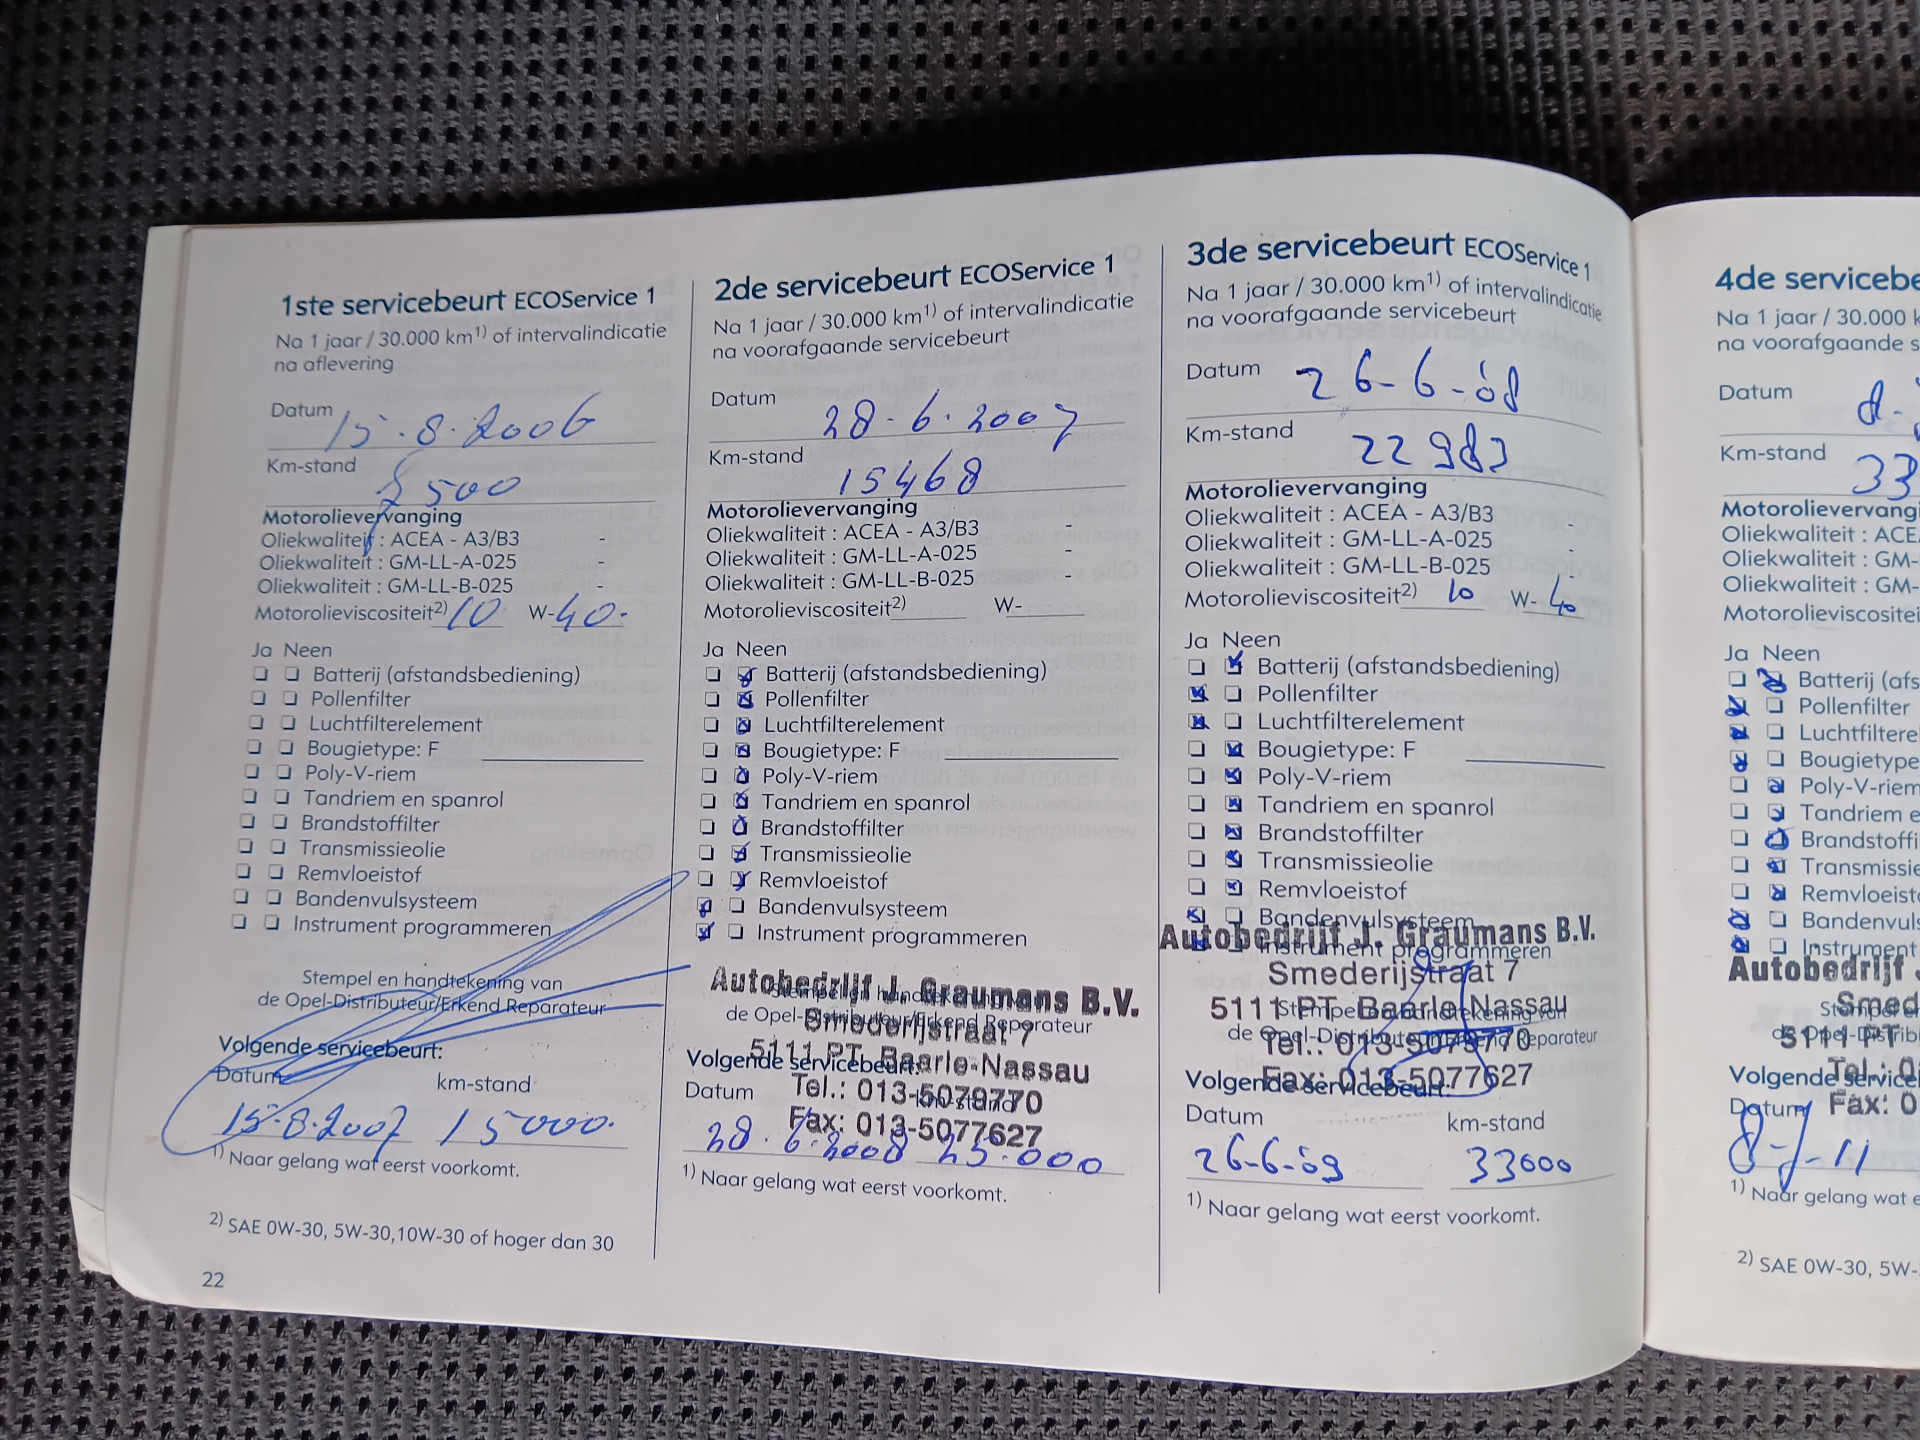 1ste servicebeurt ECOService 1
Na 1 jaar / 30.000 km1) of intervalindicatie
na aflevering
Datum 15.8.2006
Km-stand 500
Motorolievervanging
Oliekwaliteit : ACEA - A3/B3 -
Oliekwaliteit : GM-LL-A-025 -
Oliekwaliteit : GM-LL-B-025 -
Motorolieviscositeit2) 10 W-40.
Ja Neen
Batterij (afstandsbediening)
Pollenfilter
Luchtfilterelement
Bougietype: F
Poly-V-riem
Tandriem en spanrol
Brandstoffilter
Transmissieolie
Remvloeistof
Bandenvulsysteem
Instrument programmeren
Stempel en handtekening van
de Opel-Distributeur/Erkend Reparateur
Volgende servicebeurt:
Datum km-stand
15.8.2007 15000.
1) Naar gelang wat eerst voorkomt.
2) SAE 0W-30, 5W-30,10W-30 of hoger dan 30
22
2de servicebeurt ECOService 1
Na 1 jaar / 30.000 km1) of intervalindicatie
na voorafgaande servicebeurt
Datum 28-6.2007
Km-stand 15468
Motorolievervanging
Oliekwaliteit : ACEA - A3/B3 -
Oliekwaliteit : GM-LL-A-025 -
Oliekwaliteit : GM-LL-B-025 -
Motorolieviscositeit2) W-
Ja Neen
Batterij (afstandsbediening)
Pollenfilter
Luchtfilterelement
Bougietype: F
Poly-V-riem
Tandriem en spanrol
Brandstoffilter
Transmissieolie
Remvloeistof
Bandenvulsysteem
Instrument programmeren
Autobedrijf J. Graumans B.V.
de Opel-Distributeur/Erkend Reparateur
Smederijstraat 7
5111 PT Baarle-Nassau
Volgende servicebeurt:
Datum km-stand
Tel.: 013-5079770
Fax: 013-5077627
28.6.2008 25.000
1) Naar gelang wat eerst voorkomt.
3de servicebeurt ECOService 1
Na 1 jaar / 30.000 km1) of intervalindicatie
na voorafgaande servicebeurt
Datum 26-6-08
Km-stand 22983
Motorolievervanging
Oliekwaliteit : ACEA - A3/B3
Oliekwaliteit : GM-LL-A-025 -
Oliekwaliteit : GM-LL-B-025 -
Motorolieviscositeit2) 10 W-40
Ja Neen
Batterij (afstandsbediening)
Pollenfilter
Luchtfilterelement
Bougietype: F
Poly-V-riem
Tandriem en spanrol
Brandstoffilter
Transmissieolie
Remvloeistof
Bandenvulsysteem
Autobedrijf J. Graumans B.V.
Instrument programmeren
Smederijstraat 7
5111 PT Baarle-Nassau
Stempel en handtekening van
de Opel-Distributeur/Erkend Reparateur
Tel.: 013-5079770
Fax: 013-5077627
Volgende servicebeurt:
Datum km-stand
26-6-09 33000
1) Naar gelang wat eerst voorkomt.
4de servicebe
Na 1 jaar / 30.000 k
na voorafgaande s
Datum 8-
Km-stand 33
Motorolievervangi
Oliekwaliteit : ACE
Oliekwaliteit : GM-
Oliekwaliteit : GM-
Motorolieviscositei
Ja Neen
Batterij (afs
Pollenfilter
Luchtfiltere
Bougietype
Poly-V-riem
Tandriem e
Brandstoffi
Transmissie
Remvloeisto
Bandenvuls
Instrument
Autobedrijf
Smed
Stempel e
de Opel-Distrib
5111 PT
Tel.: 0
Volgende service
Datum
Fax: 0
8-7-11
1) Naar gelang wat e
2) SAE 0W-30, 5W-